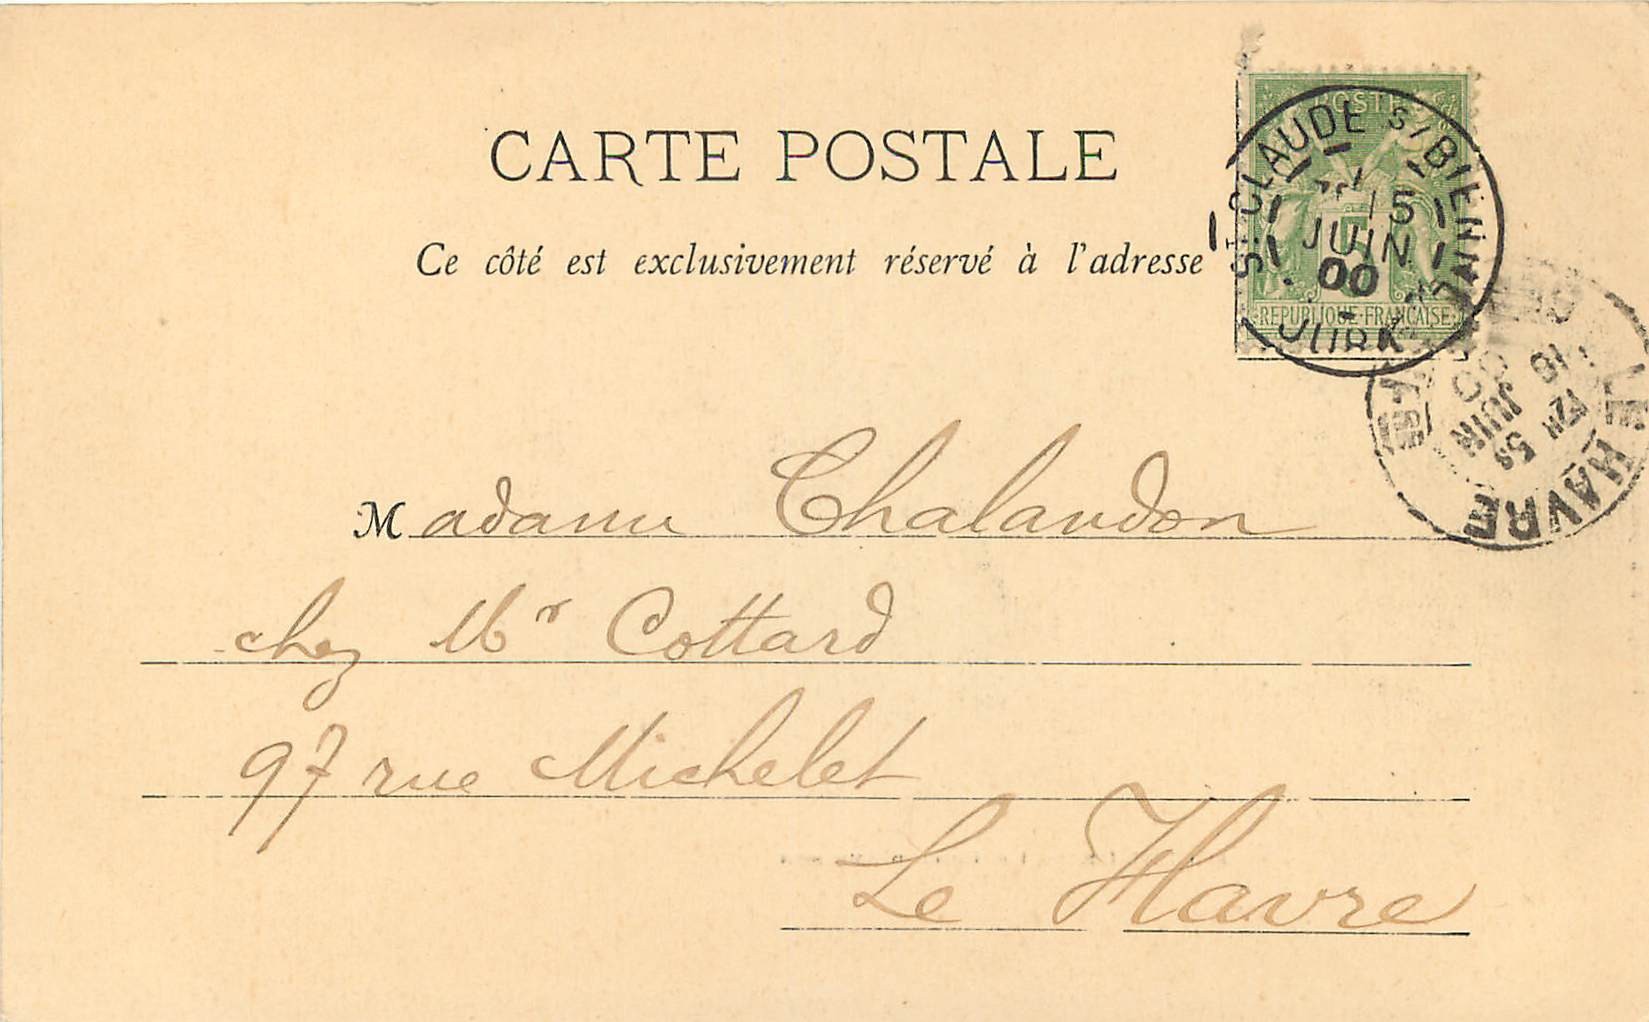 CARTE POSTALE
Ce côté est exclusivement réservé à l'adresse
POSTE
5
REPUBLIQUE FRANCAISE
ST CLAUDE S/BIENNE
15
JUIN
00
JURA
LE HAVRE
16
JUIN
00
Madame Chalandon
chez Mr Cottard
97 rue Michelet
Le Havre